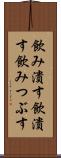 飲み潰す飲潰
す飲みつぶす